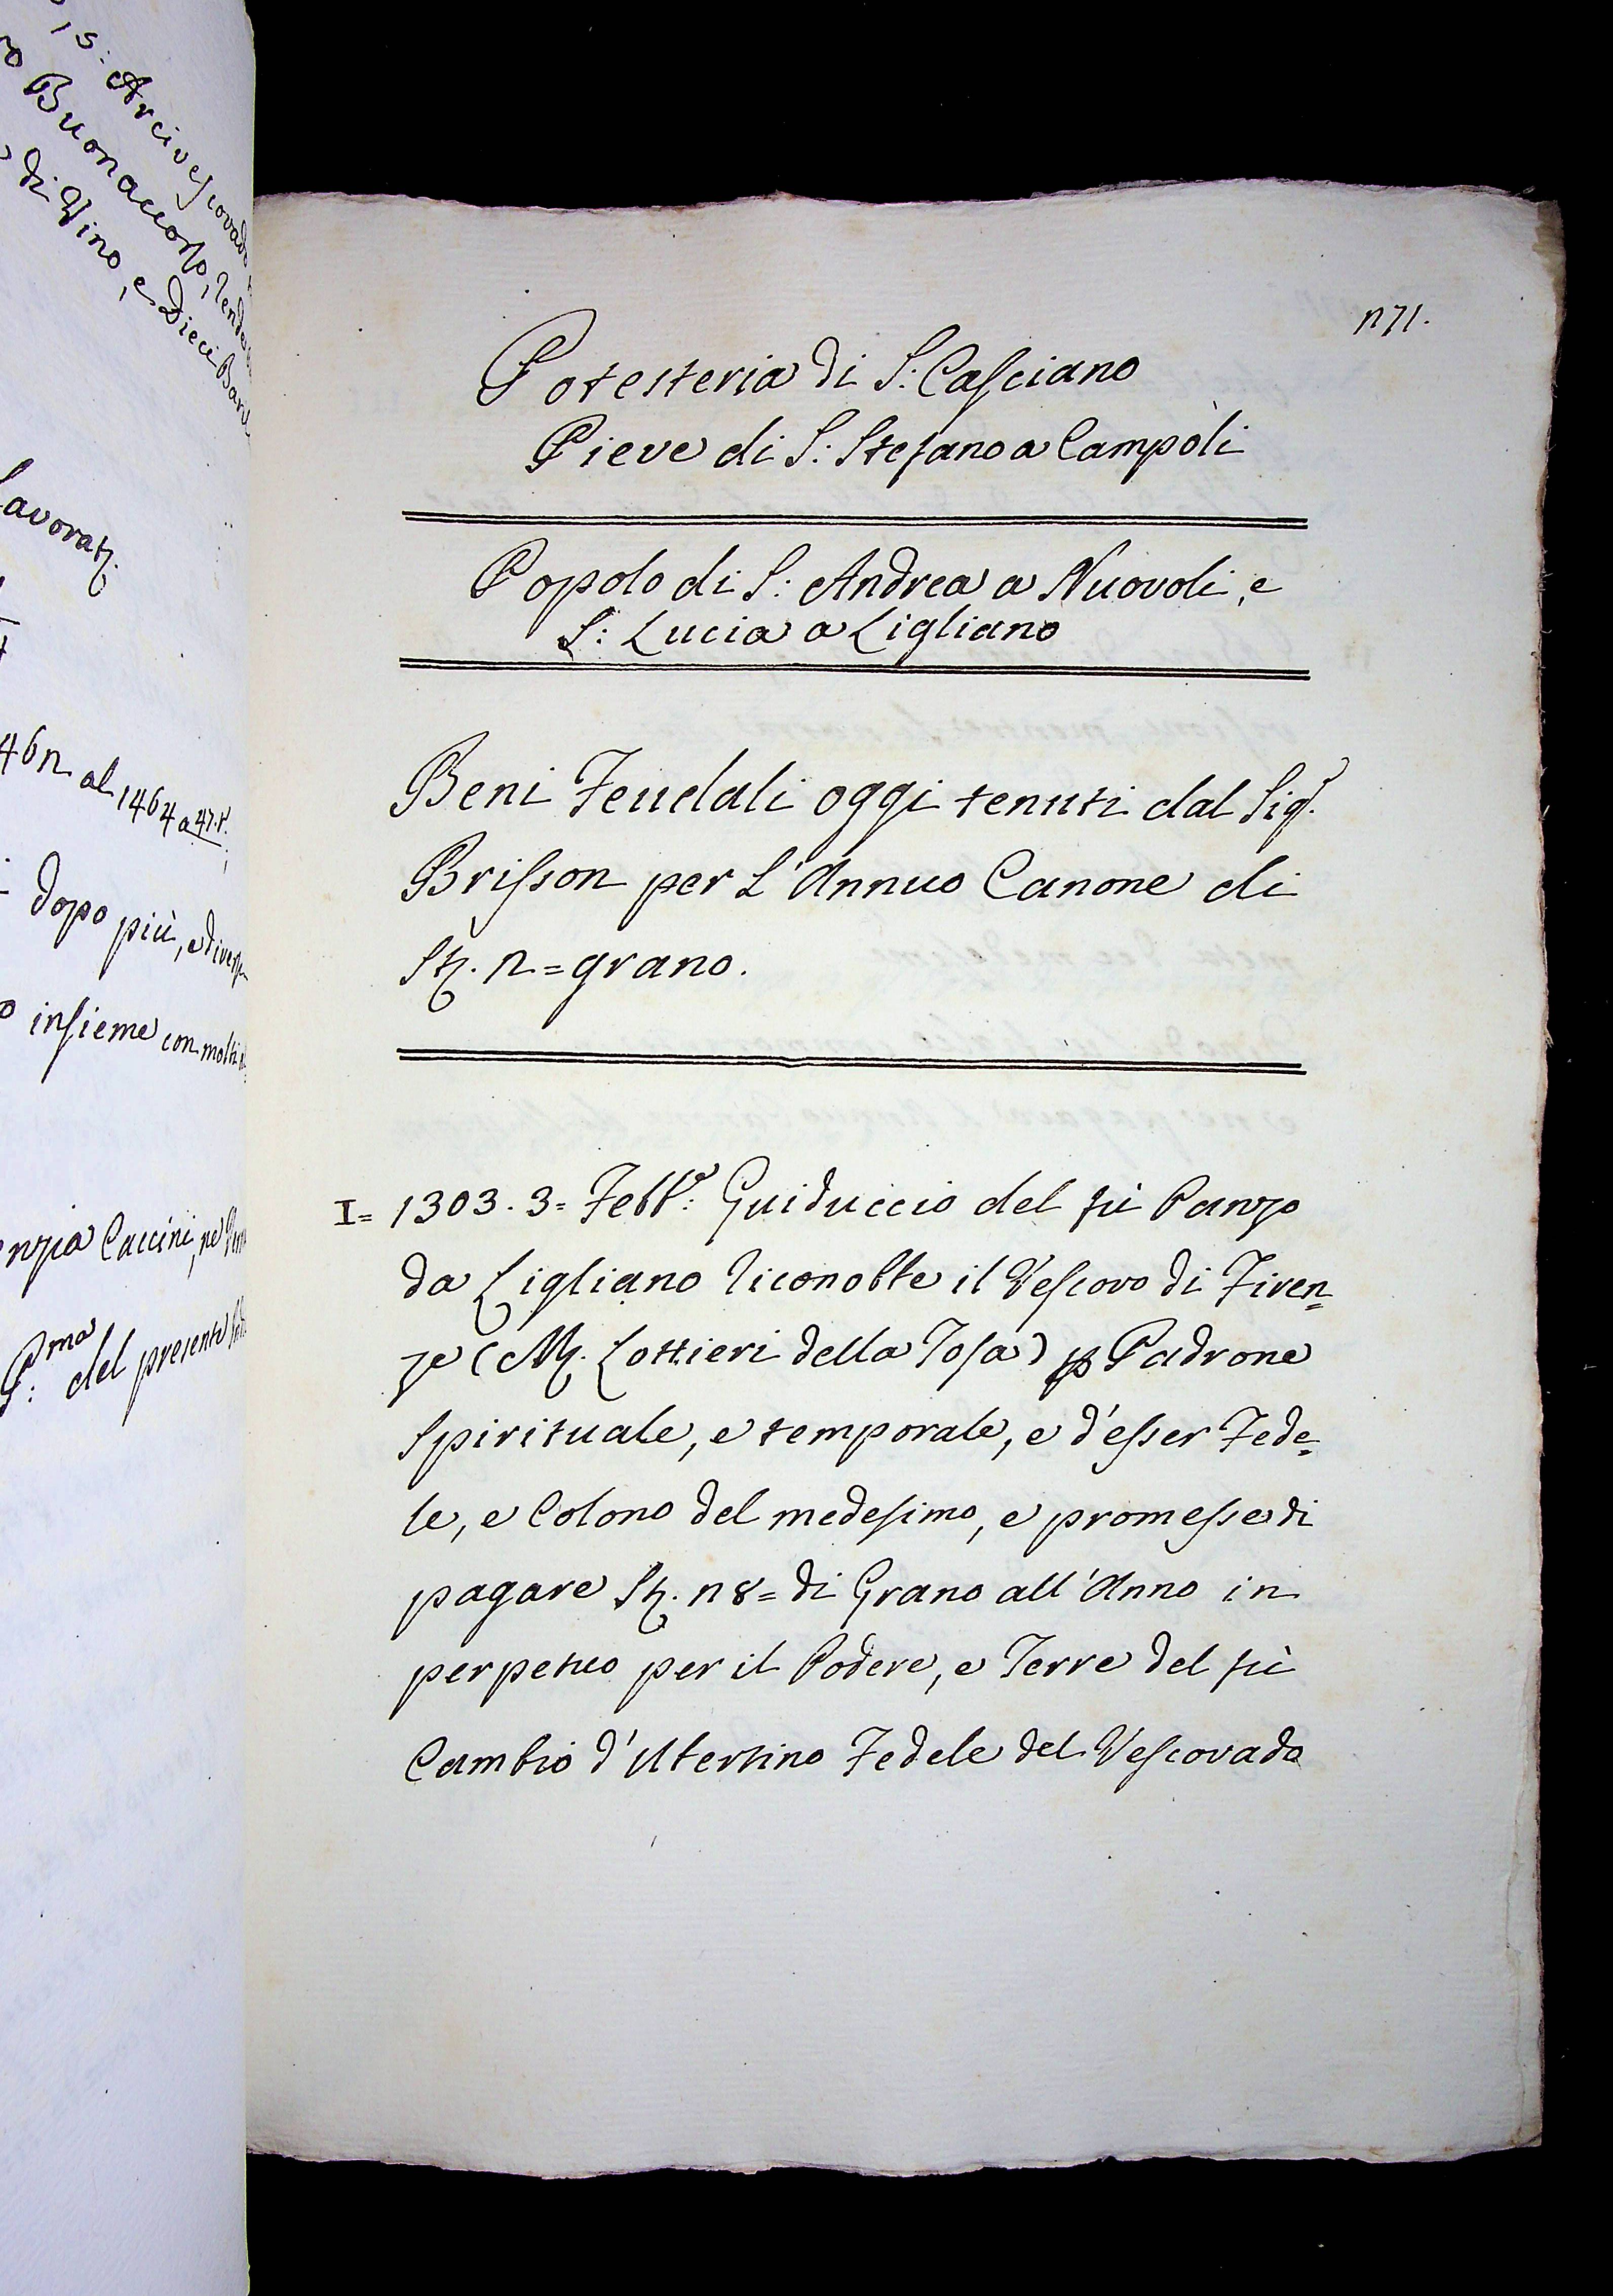 15: Arcivescovado
Buonaccorso, rende
di Vino, e Dieci Bari
lavorat.
1462 al 1464 a 47.t.
Dopo più, e diverse
insieme con molti
nzia Caccini, ne
P.ma
S: del presente
271.
Potesteria di S: Casciano
Pieve di S: Stefano a Campòli
Popolo di S: Andrea a Nuovoli, e
S: Lucia a Ligliano
Beni Feudali oggi tenuti dal Sig.r
Brisson per L'Annuo Canone di
St. 2= grano.
I= 1303. 3= Febb.o: Guiduccio del fù Panzo
da Ligliano riconobbe il Vescovo di Firen=
ze (M. Lottieri della Tosa) p Padrone
Spirituale, e temporale, e d'esser Fede=
le, e Colono del medesimo, e promesse di
pagare St. 28= di Grano all'Anno in
perpetuo per il Podere, e Terre del fù
Cambio d'Ubertino Fedele del Vescovado